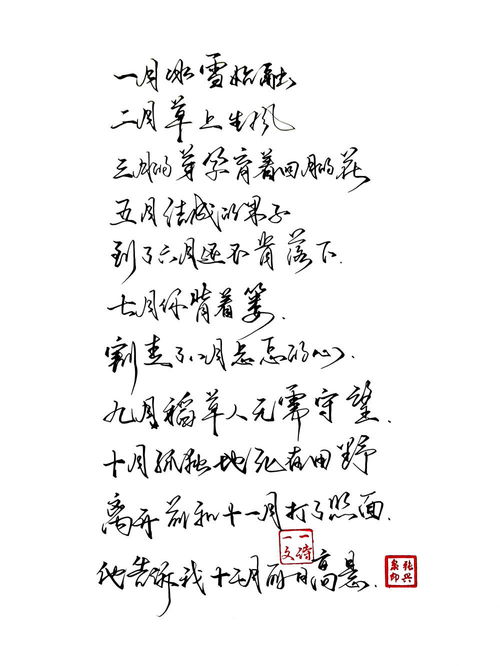 一月冰雪始融
二月草上生风
三月的芽孕育着四月的花
五月结成的果子
到了六月还不肯落下.
七月你背着篓.
割走了八月忐忑的心.
九月稻草人无需守望.
十月孤独地死在田野
离开前和十一月打了照面.
他告诉我十二月丽日高悬.
一诗一文
张兴泉印